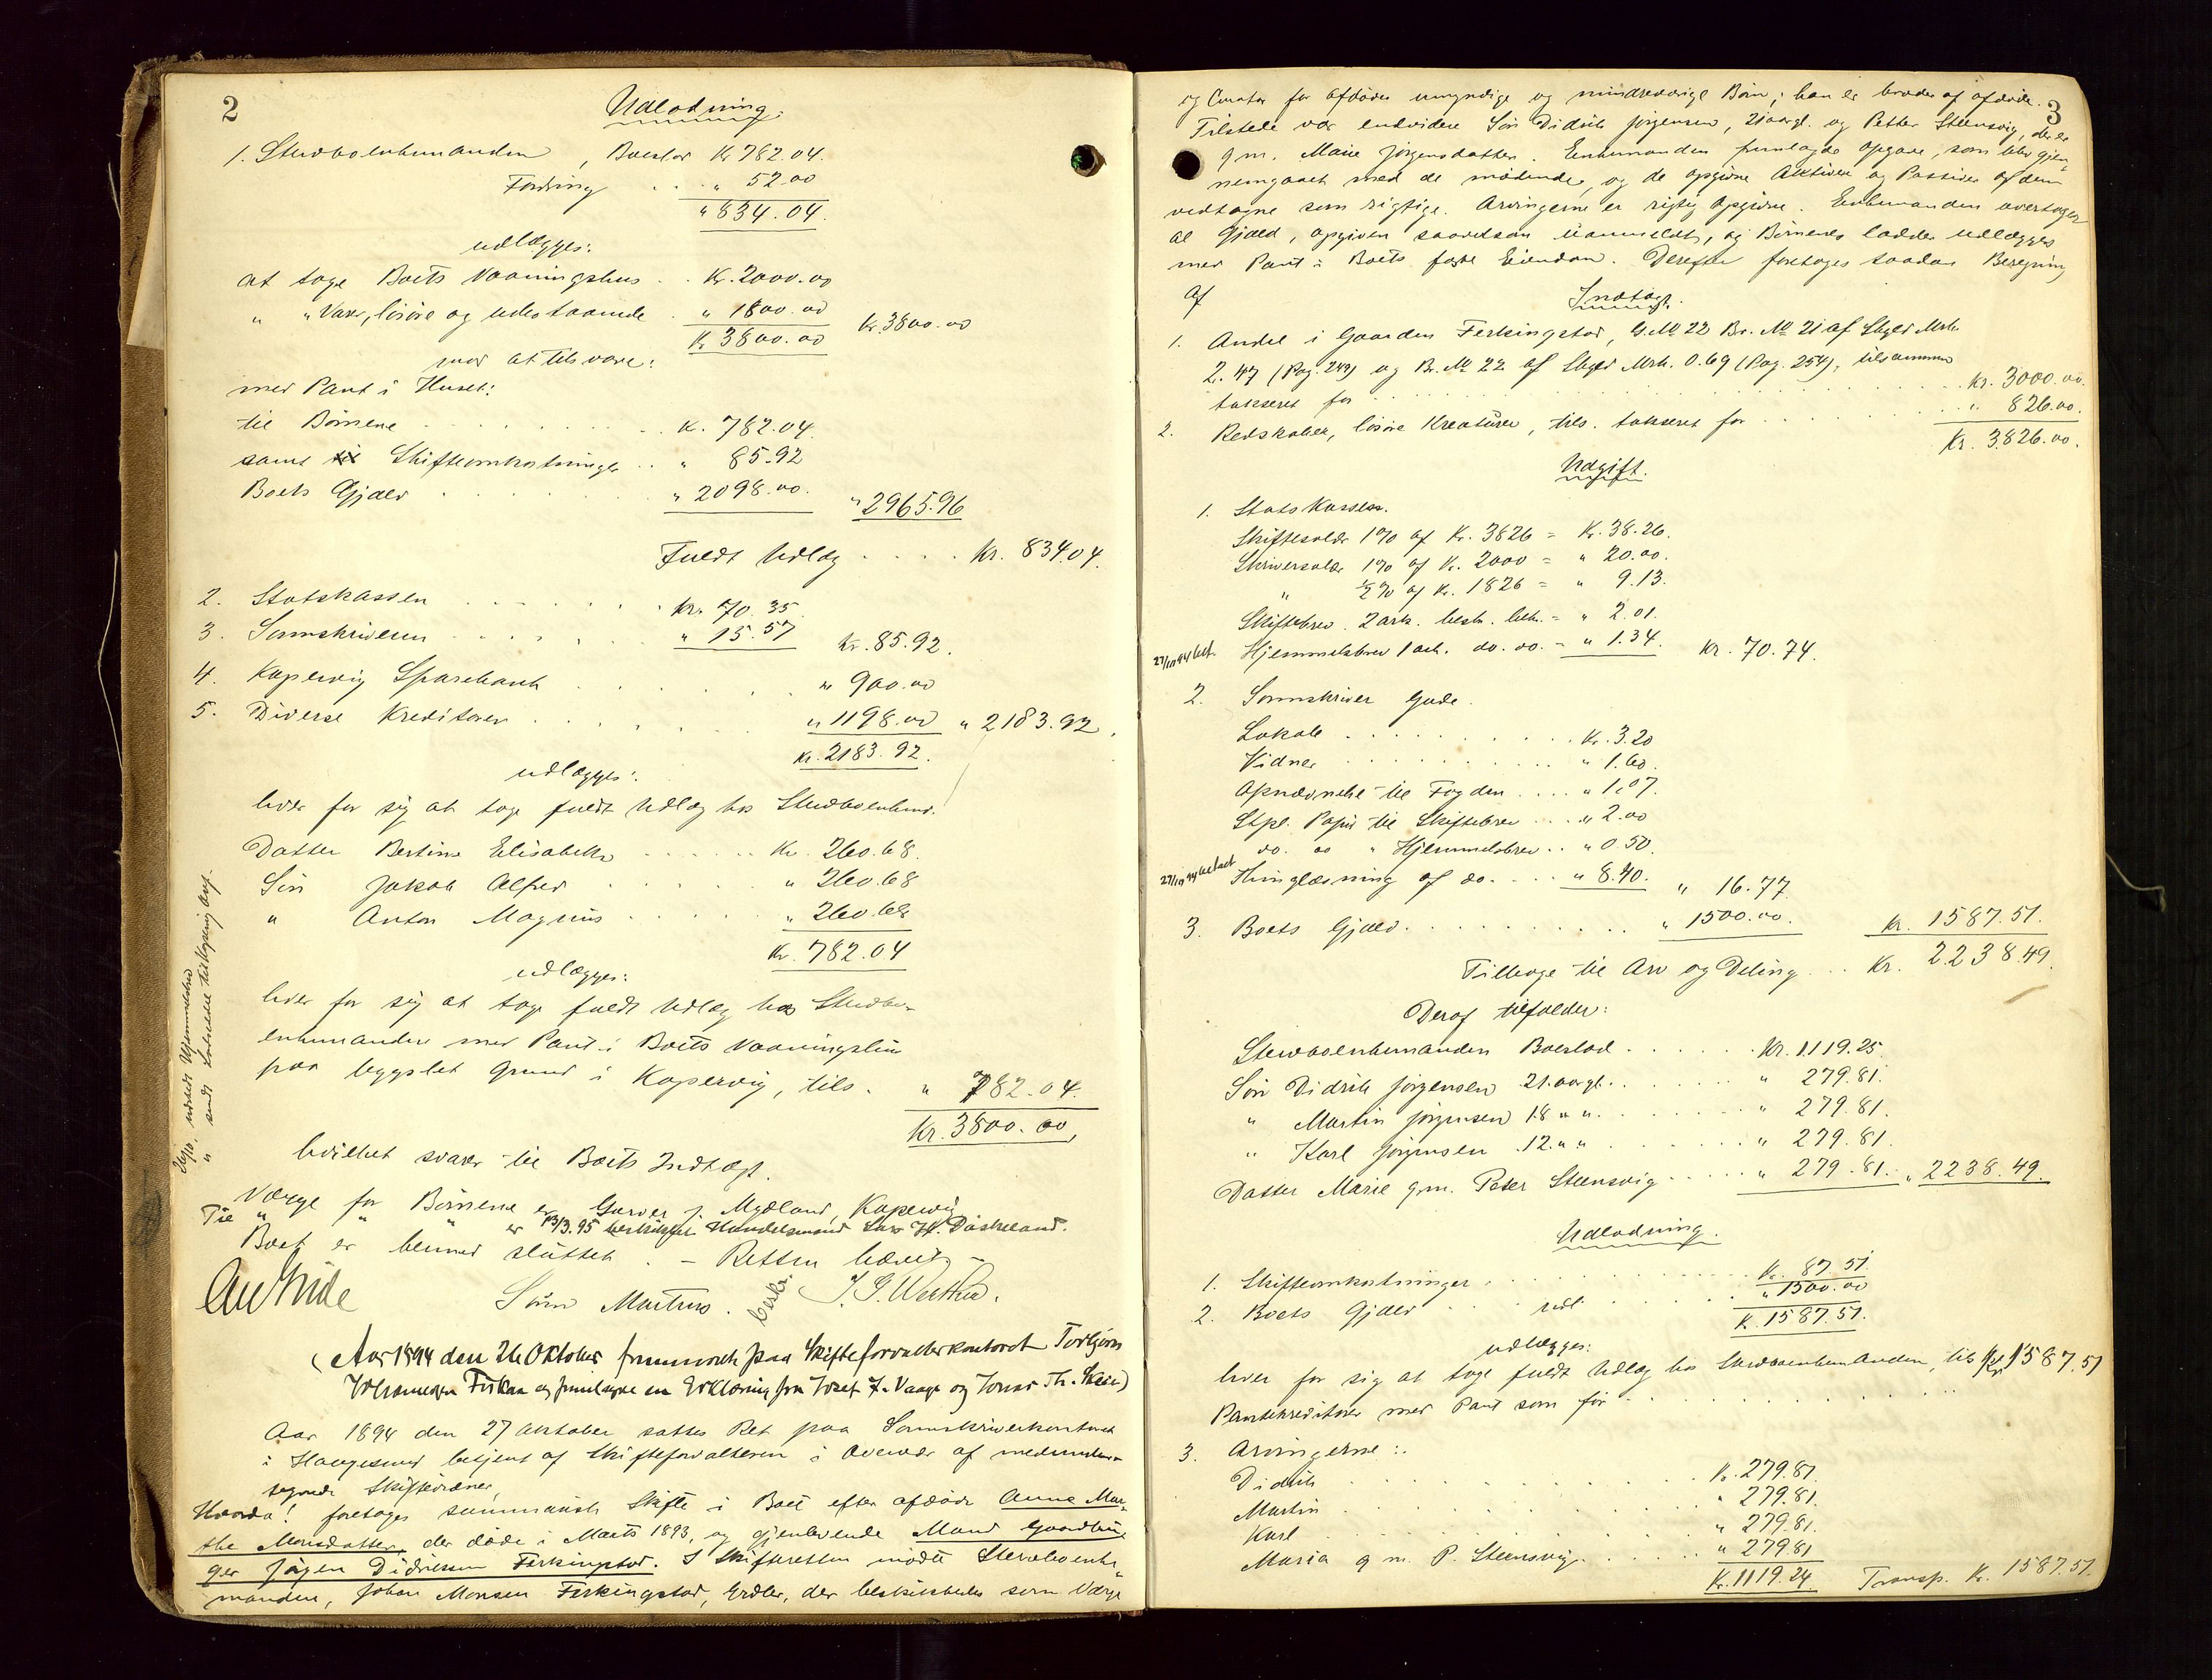 2
Udlodning.
1. Stervboenkemanden, Boeslod Kr 782.04.
Fordring . . „ 52.00
„ 834.04.
udlægges:
at tage Boets Vaaningshus . . Kr. 2000.00
„ „ Varer, løsøre og udestaaende . „ 1800.00
Kr. 3800.00 Kr. 3800.00
mod at tilsvare:
med Pant i Huset:
til Børnene . . . Kr. 782.04.
samt til Skifteomkostninger . . „ 85.92
Boets Gjæld . . . „ 2098.00. „ 2965.96
Fuldt Udlæg . . . . Kr. 834.04.
2. Statskassen . . . Kr. 70.35
3. Sorenskriveren . . . „ 15.57 Kr. 85.92.
4. Kopervig Sparebank . . . „ 900.00
5. Diverse Kreditorer . . . „ 1198.00 „ 2183.92.
Kr. 2183.92.
udlægges:
hver for sig at tage fuldt Udlæg hos Stervboenkem.
Datter Bertine Elisabeth . . . Kr. 260.68.
Søn Jakob Alfred . . . „ 260.68
„ Anton Magnus . . . „ 260.68
Kr. 782.04
udlægges:
hver for sig at tage fuldt Udlæg hos Stervbo-
enkemanden med Pant i Boets Vaaningshus
paa bygslet Grund i Kopervig, tils. „ 782.04.
Kr. 3800.00,
hvilket svarer til Boets Indtægt.
Værge for Børnene er Garver J. Mydland, Kopervig
Til „ „ „ er 13/3.95 beskikket Handelsmand Lars H. Døskeland.
Boet er hermed sluttet. - Retten hævet -
Søren Martens. J. G. Wathne.
26/10. udstedt Hjemmelsbrev
„ sendt Lodseddel
(Aar 1894 den 26 Oktober fremmødte paa Skifteforvalterkontoret Torbjørn
og fremlagde en Erklæring fra Josef J. Vaage og Jonas Th.
Aar 1894 den 27 oktober sattes Ret paa Sorenskriverkontoret
i Haugesund betjent af Skifteforvalteren i Overvær af medunder-
tegnede Skiftevidner,
Hvorda! foretages summarisk Skifte i Boet efter afdøde Anne Mar-
the Monsdatter, der døde i Marts 1893, og gjenlevende Mand Gaardbru-
ger Jørgen Didriksen Ferkingstad. I Skifteretten mødte Stervboenke-
manden, Johan Monsen Ferkingstad, der beskikkedes som Værge
3
og Curator for afdødes umyndige og mindreaarige Børn; han er broder af afdøde.
Tilstede var endvidere Søn Didrik Jørgensen, 21 aargl. og Petter Steensvig, der er
g.m. Marie Jørgensdatter. Enkemanden fremlagde opgave, som blev gjen-
nemgaaet med de mødende, og de opgivne Aktiver og Passiver af dem
vedtagne som rigtige. Arvingerne er rigtig opgivne. Enkemanden overtager
al Gjæld, opgiven saavelsom uanmeldt, og Børnenes lodder udlægges
med Pant i Boets faste Eiendom. Derefter foretages saadan Beregning
af
Indtægt.
1. Andel i Gaarden Ferkingstad, G.No 22 Br. No 21 af Skyld Mrk.
2.47 (Pag. 249) og Br. No 22 af Skyld Mrk. 0.69 (Pag. 254), tilsammen
takseret for . . . Kr. 3000.00.
2. Redskaber, løsøre Kreaturer, tils. takseret for . . . „ 826.00.
Kr. 3826.00.
Udgift.
1. Statskassen.
Skiftesalær 1% af Kr. 3826 = Kr. 38.26.
Skriversalær 1% af Kr. 2000 = „ 20.00.
„ ½% af Kr. 1826 = „ 9.13.
Skiftebrev 2 ark. besk. bek. = „ 2.01.
27/10 94 bet. Hjemmelsbrev 1 ark. do. do. = „ 1.34. Kr. 70.74.
2. Sorenskriver Gude.
Lokale . . . Kr. 3.20
Vidner . . . „ 1.60.
Opnævnelse til Fogden . . . . „ 1.07.
Stpl. Papir til Skiftebrev . . . „ 2.00
do. do „ Hjemmelsbrev . . „ 0.50.
27/10 94 betalt Thinglæsning af do. . . . „ 8.40. „ 16.77.
3. Boets Gjæld . . . „ 1500.00. Kr. 1587.51.
Tilbage til Arv og Deling . . . Kr. 2238.49.
Deraf tilfalder:
Stervboenkemanden Boeslod . . . Kr. 1119.25.
Søn Didrik Jørgensen 21. aargl. . . . „ 279.81.
„ Martin Jørgensen 18 „ „ . . . „ 279.81.
„ Karl Jørgensen 12. „ „ . . . „ 279.81.
Datter Marie g.m. Peter Steensvig . . . „ 279.81. „ 2238.49.
Udlodning.
1. Skifteomkostninger . . . Kr. 87.51.
2. Boets Gjæld . . . „ 1500.00
Kr. 1587.51.
udlægges:
hver for sig at tage fuldt Udlæg hos Stervboenkemanden, tils Kr. 1587.51
Pantekreditorer med Pant som før . . .
3. Arvingerne:
Didrik . . . Kr. 279.81.
Martin . . . „ 279.81.
Karl . . . „ 279.81.
Maria g m. P. Steensvig. . . . „ 279.81
Kr. 1119.24 Transp. Kr. 1587.51.